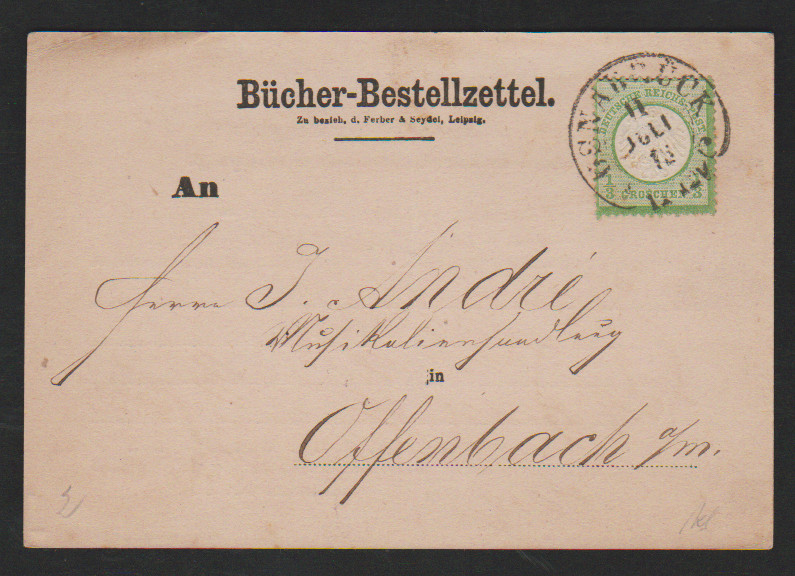 Bücher-Bestellzettel.
Zu bezieh. d. Ferber & Seydel, Leipzig.
OSNABRÜCK
11
JULI
DEUTSCHE REICHS-POST
1/3 GROSCHEN 1/3
An
Herrn J. André
Musikalienhandlung
in
Offenbach a/m.